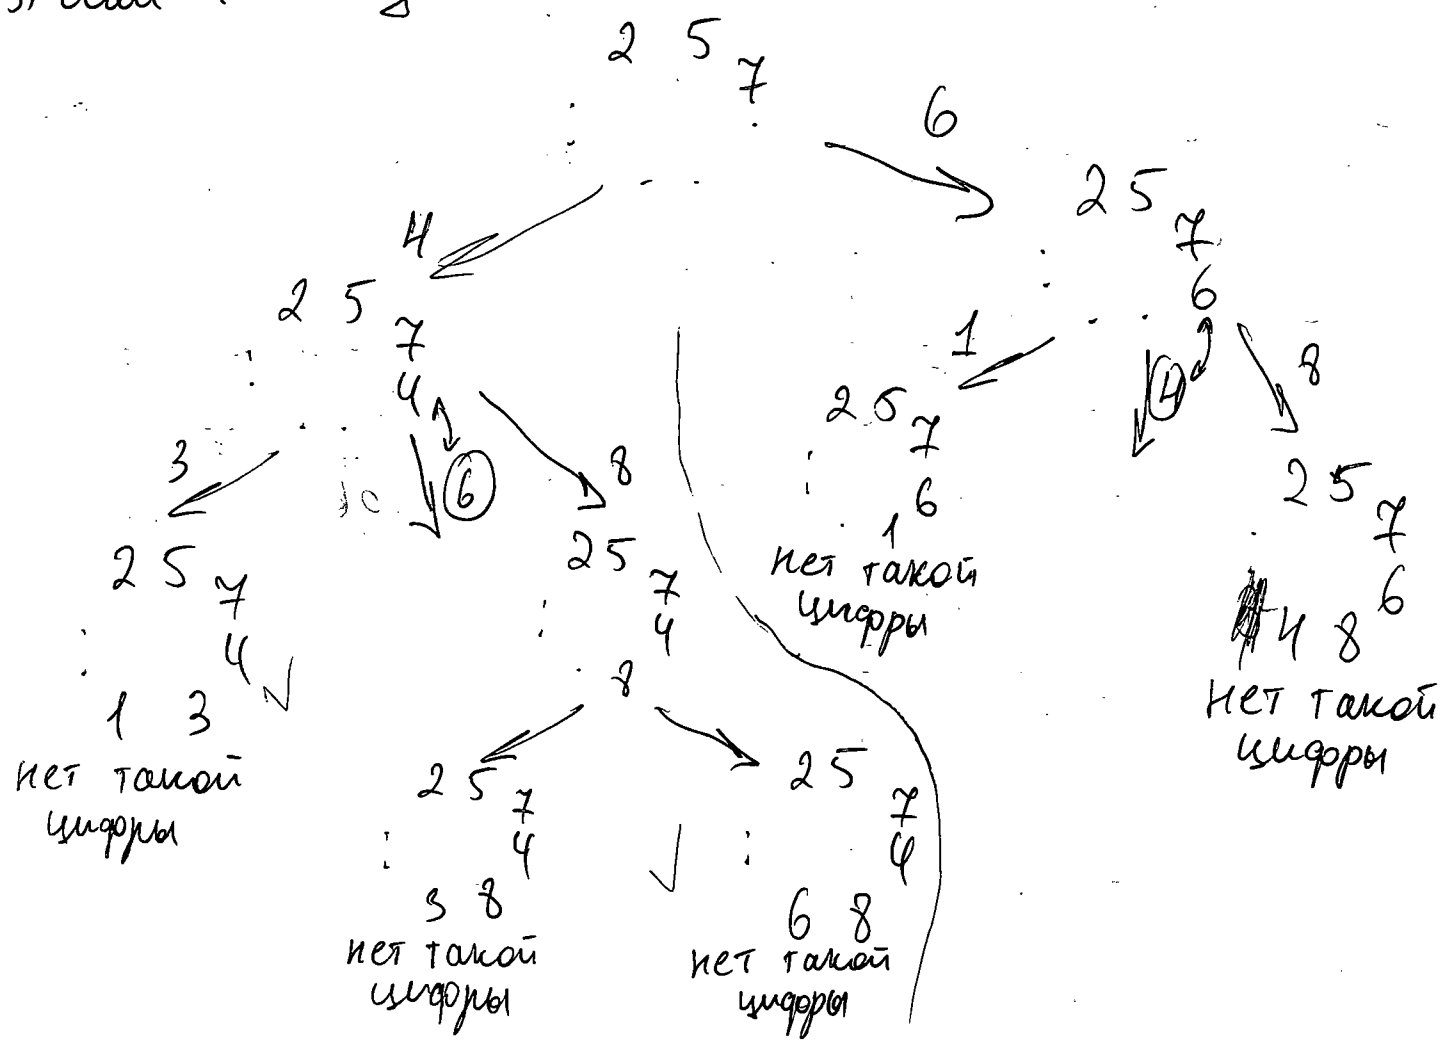 2 5
7
6
2 5
7
6
4
2 5
7
4
1
2 5
7
6
1
нет такой
цифры
4
8
2 5
7
6
4 8
нет такой
цифры
3
2 5
7
4
1 3
нет такой
цифры
6
8
2 5
7
4
8
2 5
7
4
3 8
нет такой
цифры
2 5
7
4
6 8
нет такой
цифры